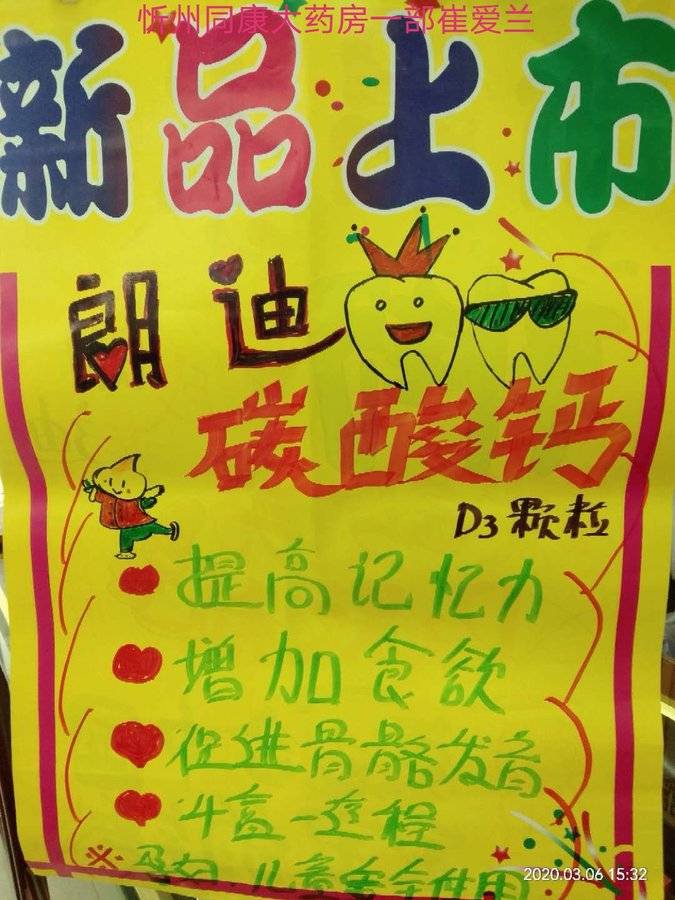 忻州同康大药房一部崔爱兰
新品上市
朗迪
碳酸钙
D3颗粒
提高记忆力
增加食欲
促进骨骼发育
4盒一疗程
※孕妇、儿童安全使用
2020.03.06 15:32